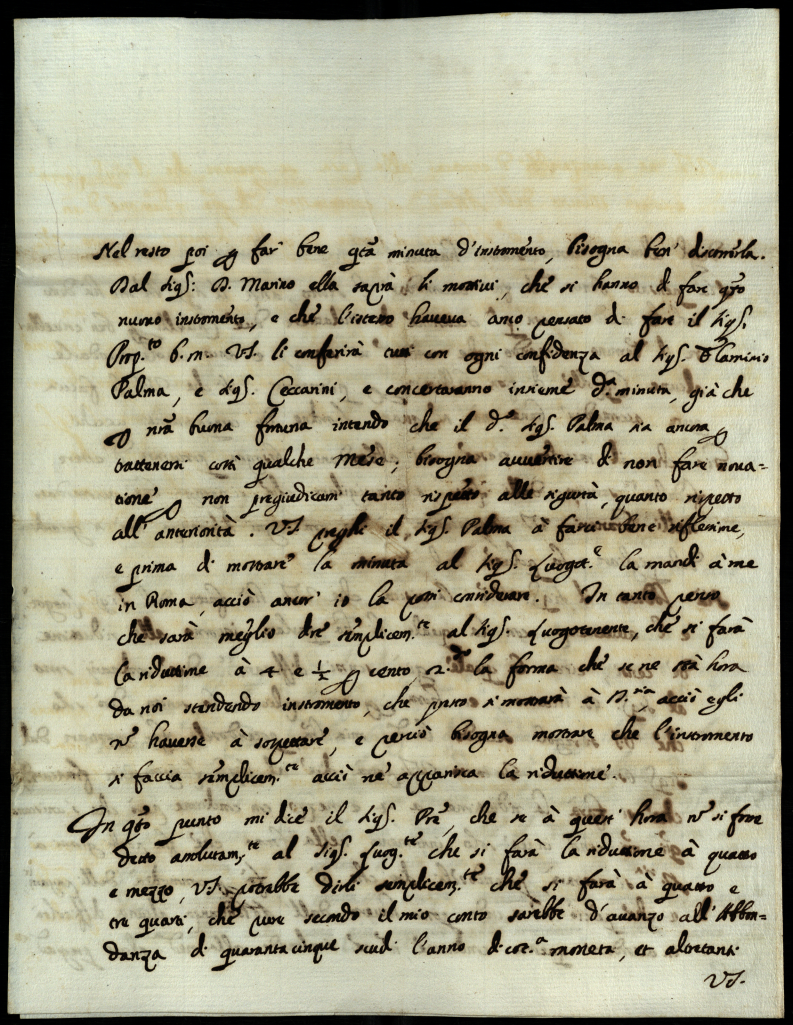 Nel resto poi p far bene qta minuta d'instromento, bisogna ben discorrerla.
Dal Sigr: D. Marino ella saprà li motivi, che si hanno di fare qto
nuovo instromento, e che l'istesso haveva anco pensato di fare il Sigr.
b. m. VS. li conferirà tutti con ogni confidenza al Sigr. Flaminio
Palma, e Sigr. Ceccarini, e concertaranno insieme da. minuta, già che
p nra buona fortuna intendo che il do. Sigr. Palma sia ancora p
trattenersi costì qualche mese; bisogna avvertire di non fare nova=
tione p non pregiudicarsi tanto rispetto alle sigurtà, quanto rispetto
all'anteriorità. VS. preghi il Sigr. Palma à farci bene riflessione,
e prima di mostrare la minuta al Sigr. Luogot.e la mandi à me
in Roma, acciò ancor' io la possi considerare. In tanto penso
che sarà meglio dire simplicem.te al Sigr. Luogotenente, che si farà
la riduttione à 4 e ½ p cento, la forma che se ne stà hora
da noi stendendo instromento, che presto si mostrarà à acciò egli
nō havesse à sospettare, e perciò bisogna mostrare che l'instromento
si faccia simplicem.te acciò ne apparisca la riduttione.
In qto punto mi dice il Sigr. Pre, che se à quest' hora nō si fosse
detto assolutam.te al Sigr. Luog.te che si farà la riduttione à quattro
e mezzo, VS. potrebbe dirli semplicem.te che si farà à quattro e
tre quarti, che pure secondo il mio conto sarebbe d'avanzo all'Abbon=
danza di quaranta cinque scudi l'anno di cot.a moneta, et altretanti
VS.